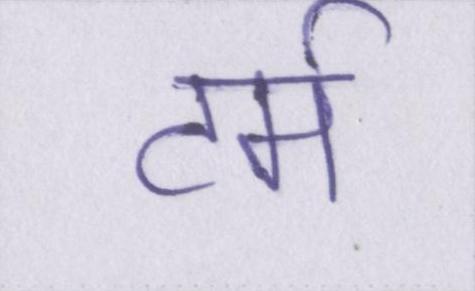 टर्म